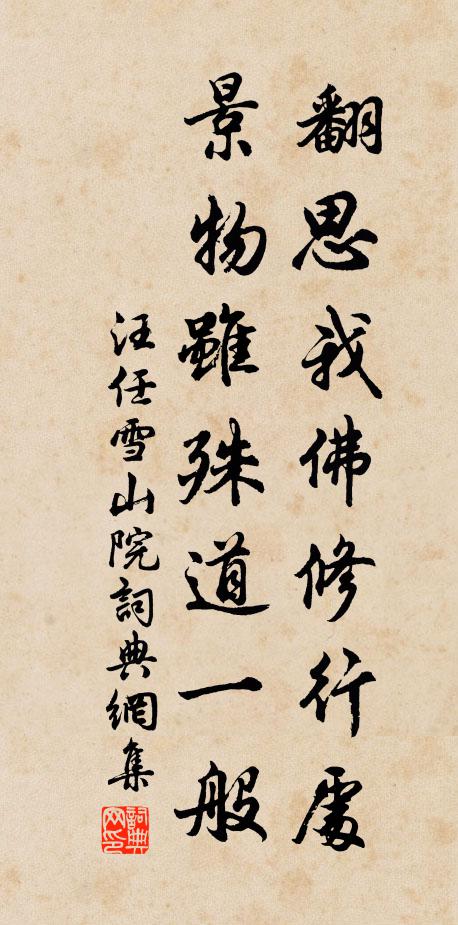 翻思我佛修行處
景物雖殊道一般
汪任雪山院詞典網集
詞典網印